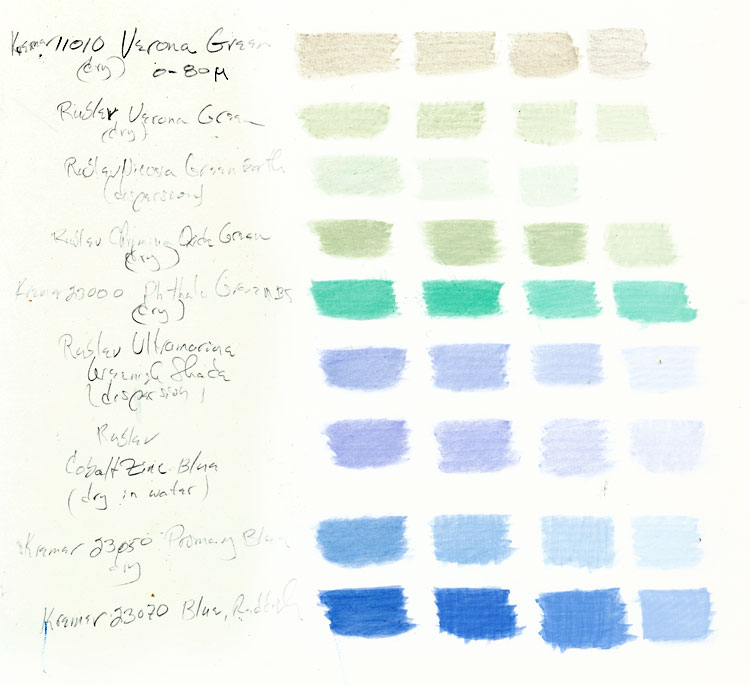 Kremer 11010 Verona Green
(dry) 0-80µ
Rublev Verona Green
(dry)
Rublev Nicosia Green Earth
(dispersion)
Rublev Chromium Oxide Green
(dry)
Kremer 23000 Phthalo Green BS
(dry)
Rublev Ultramarine
Greenish Shade
(dispersion)
Rublev
Cobalt Zinc Blue
(dry in water)
Kremer 23050 Primary Blue
dry
Kremer 23070 Blue, Reddish